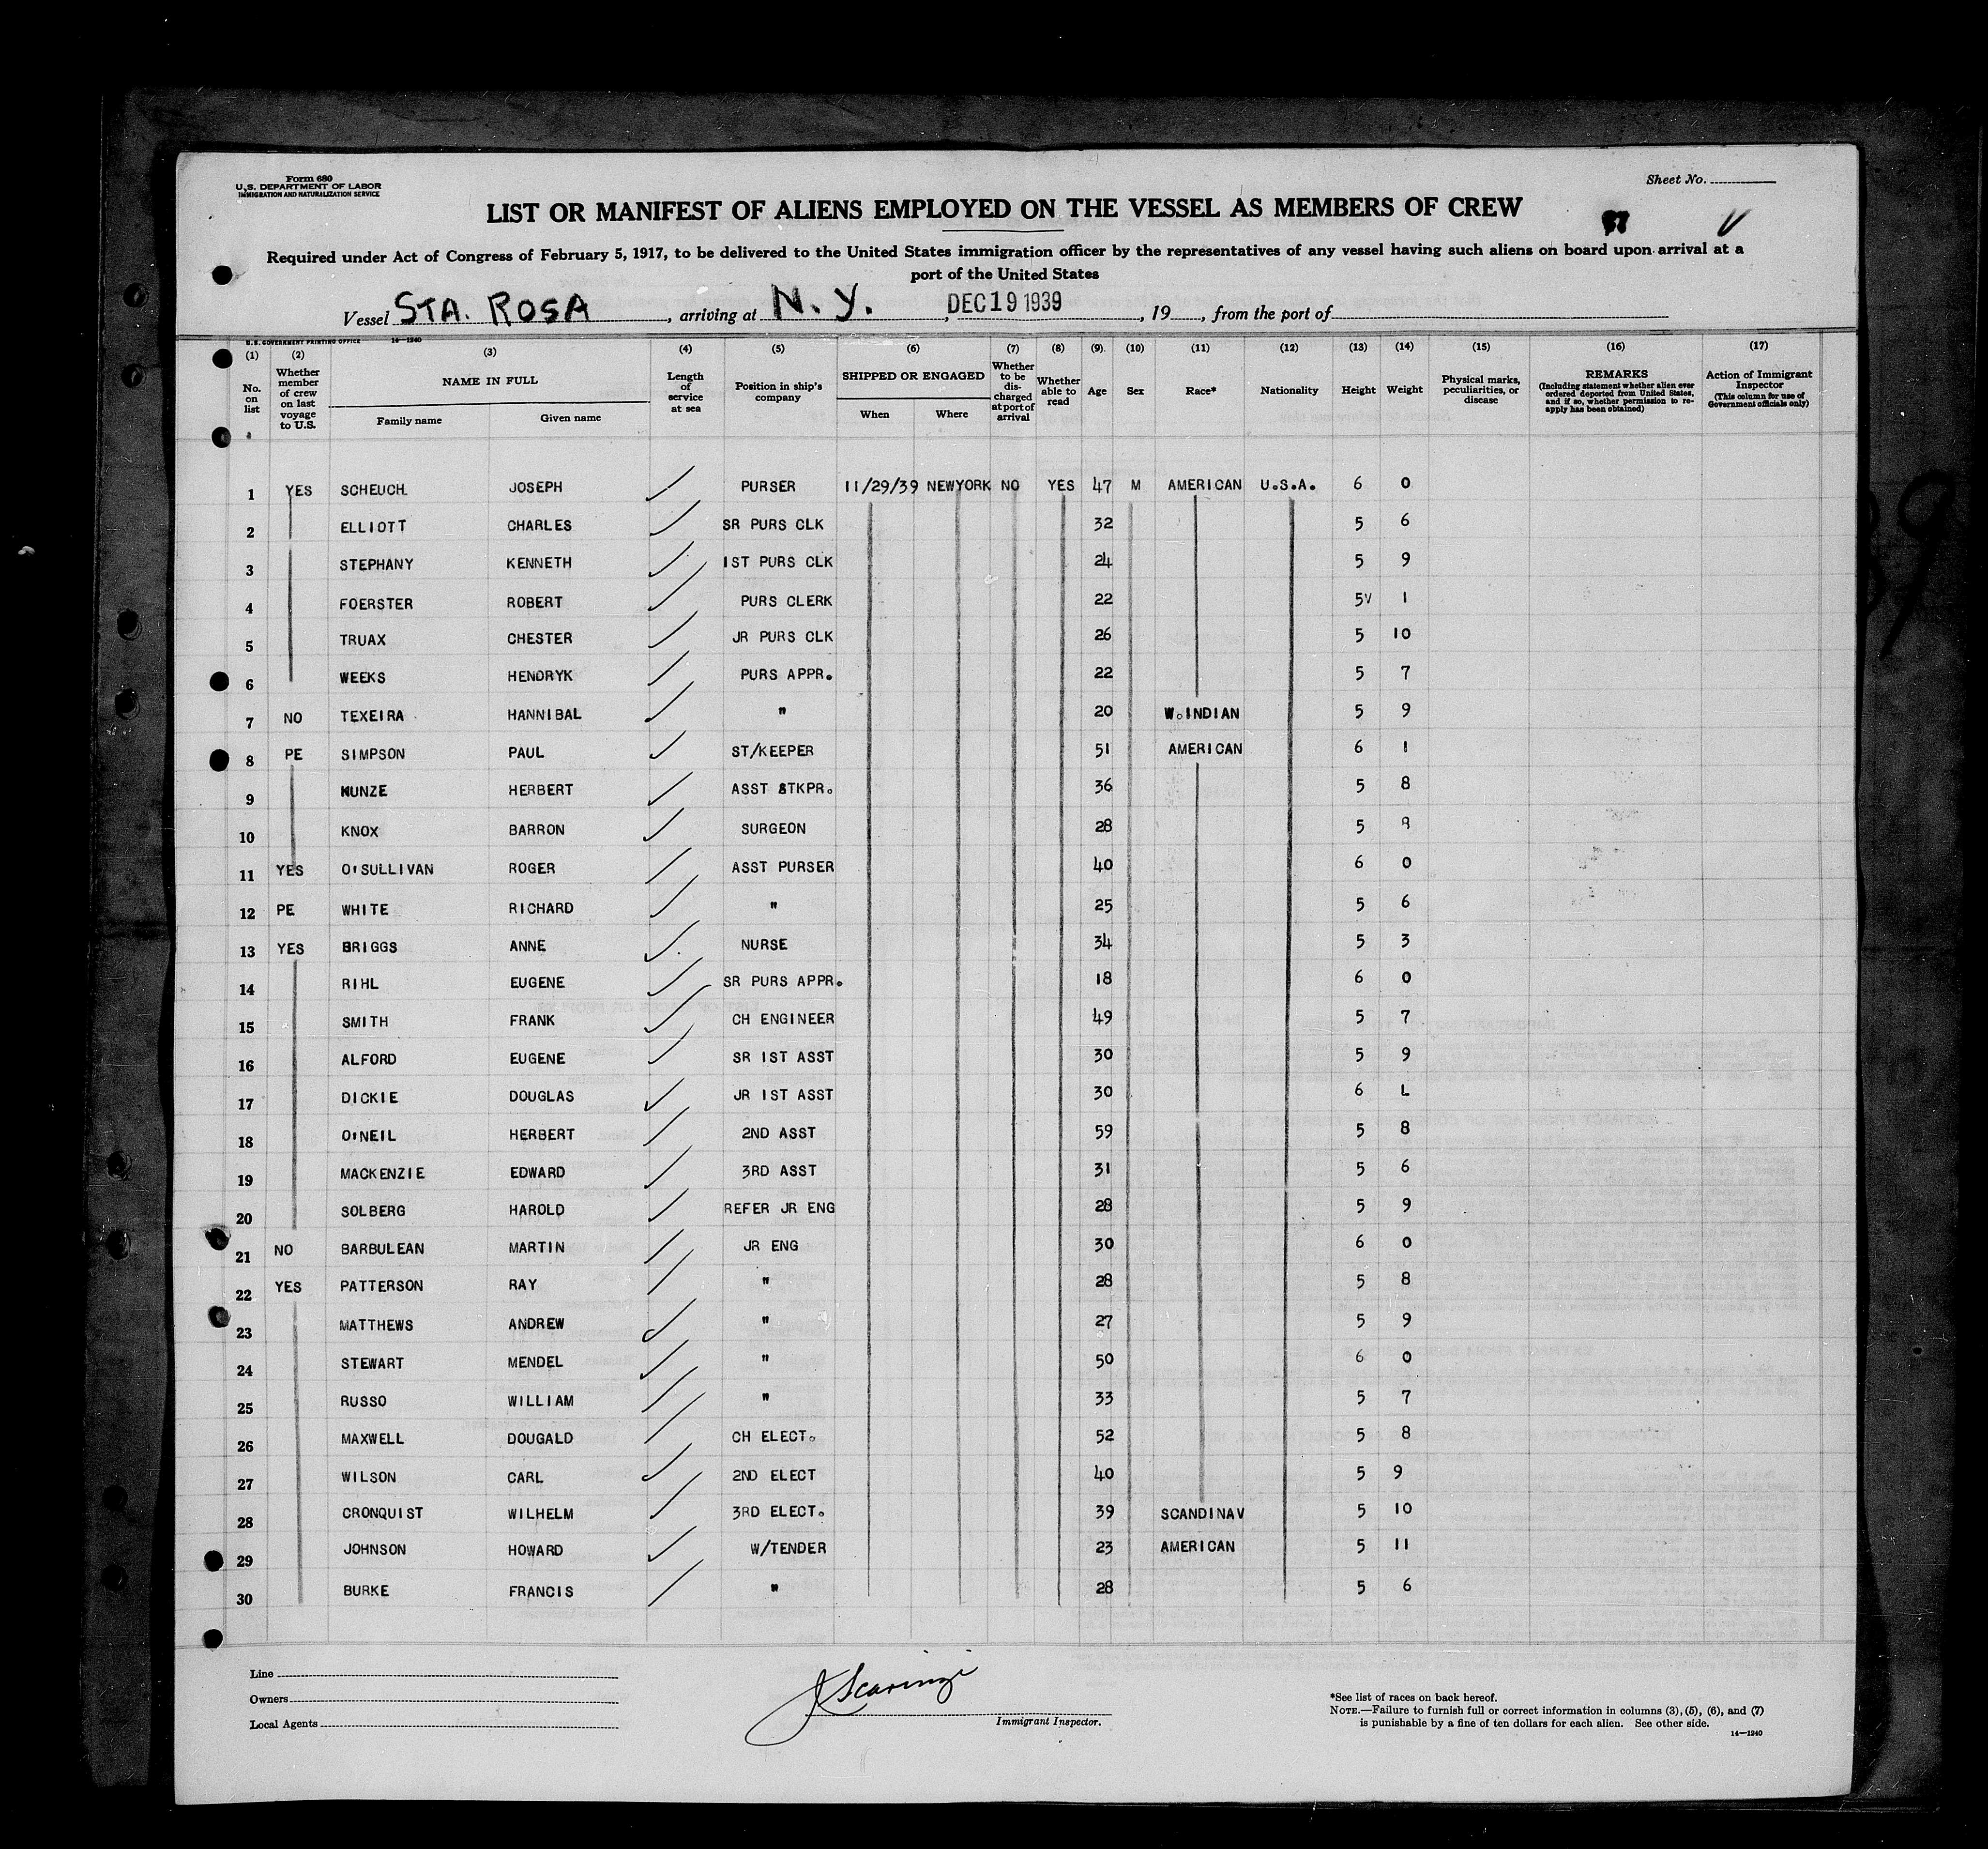 Form 680
U.S. DEPARTMENT OF LABOR
IMMIGRATION AND NATURALIZATION SERVICE
Sheet No.
LIST OR MANIFEST OF ALIENS EMPLOYED ON THE VESSEL AS MEMBERS OF CREW
Required under Act of Congress of February 5, 1917, to be delivered to the United States immigration officer by the representatives of any vessel having such aliens on board upon arrival at a
port of the United States
Vessel STA. ROSA, arriving at N. Y., DEC 19 1939, 19, from the port of
U.S. GOVERNMENT PRINTING OFFICE 14—1240
(1) (2) (3) (4) (5) (6) (7) (8) (9) (10) (11) (12) (13) (14) (15) (16) (17)
No. on list
Whether member of crew on last voyage to U.S.
NAME IN FULL
Family name Given name
Length of service at sea
Position in ship's company
SHIPPED OR ENGAGED
When Where
Whether to be discharged at port of arrival
Whether able to read
Age
Sex
Race*
Nationality
Height
Weight
Physical marks, peculiarities, or disease
REMARKS
(Including statement whether alien ever ordered deported from United States, and if so, whether permission to reapply has been obtained)
Action of Immigrant Inspector
(This column for use of Government officials only)
1 YES SCHEUCH JOSEPH PURSER 11/29/39 NEWYORK NO YES 47 M AMERICAN U.S.A. 6 0
2 ELLIOTT CHARLES SR PURS CLK 32 5 6
3 STEPHANY KENNETH 1ST PURS CLK 24 5 9
4 FOERSTER ROBERT PURS CLERK 22 5V 1
5 TRUAX CHESTER JR PURS CLK 26 5 10
6 WEEKS HENDRYK PURS APPR. 22 5 7
7 NO TEXEIRA HANNIBAL " 20 W.INDIAN 5 9
8 PE SIMPSON PAUL ST/KEEPER 51 AMERICAN 6 1
9 KUNZE HERBERT ASST STKPR. 36 5 8
10 KNOX BARRON SURGEON 28 5 8
11 YES O'SULLIVAN ROGER ASST PURSER 40 6 0
12 PE WHITE RICHARD " 25 5 6
13 YES BRIGGS ANNE NURSE 34 5 3
14 RIHL EUGENE SR PURS APPR. 18 6 0
15 SMITH FRANK CH ENGINEER 49 5 7
16 ALFORD EUGENE SR 1ST ASST 30 5 9
17 DICKIE DOUGLAS JR 1ST ASST 30 6 L
18 O'NEIL HERBERT 2ND ASST 59 5 8
19 MACKENZIE EDWARD 3RD ASST 31 5 6
20 SOLBERG HAROLD REFER JR ENG 28 5 9
21 NO BARBULEAN MARTIN JR ENG 30 6 0
22 YES PATTERSON RAY " 28 5 8
23 MATTHEWS ANDREW " 27 5 9
24 STEWART MENDEL " 50 6 0
25 RUSSO WILLIAM " 33 5 7
26 MAXWELL DOUGALD CH ELECT. 52 5 8
27 WILSON CARL 2ND ELECT 40 5 9
28 CRONQUIST WILHELM 3RD ELECT. 39 SCANDINAV 5 10
29 JOHNSON HOWARD W/TENDER 23 AMERICAN 5 11
30 BURKE FRANCIS " 28 5 6
Line
Owners
Local Agents
J Scaringi
Immigrant Inspector.
*See list of races on back hereof.
NOTE.—Failure to furnish full or correct information in columns (3), (5), (6), and (7)
is punishable by a fine of ten dollars for each alien. See other side.
14—1240